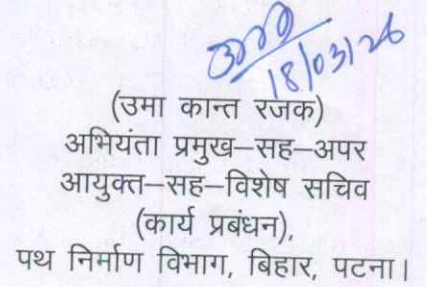 18/03/26
(उमा कान्त रजक)
अभियंता प्रमुख–सह–अपर
आयुक्त–सह–विशेष सचिव
(कार्य प्रबंधन),
पथ निर्माण विभाग, बिहार, पटना।